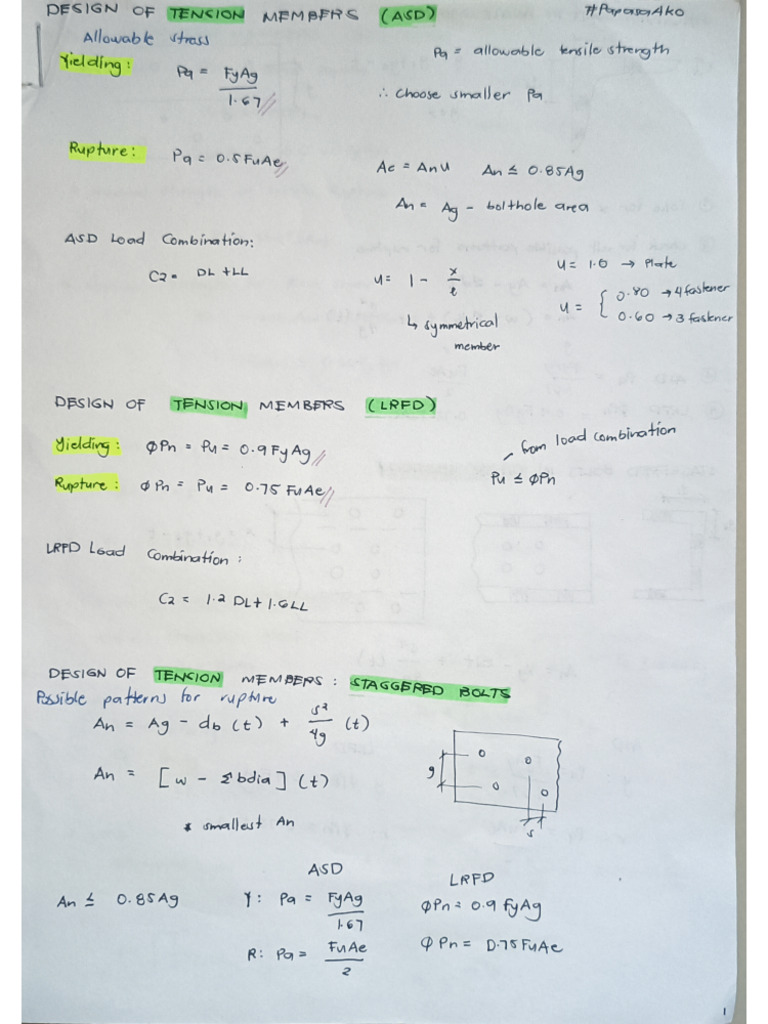 DESIGN OF TENSION MEMBERS (ASD) #PapasaAko
Allowable stress
Yielding: Pa = FyAg / 1.67
Pa = allowable tensile strength
∴ choose smaller Pa
Rupture: Pa = 0.5FuAe
Ae = AnU An ≤ 0.85Ag
An = Ag - bolthole area
ASD Load Combination:
C2 = DL + LL
U = 1 - x / l
↳ symmetrical
member
U = 1.0 → Plate
U = { 0.80 → 4 fastener
0.60 → 3 fastener
DESIGN OF TENSION MEMBERS (LRFD)
Yielding: ØPn = Pu = 0.9 FyAg
Rupture: ØPn = Pu = 0.75 FuAe
from load combination
Pu ≤ ØPn
LRFD Load Combination:
C2 = 1.2 DL + 1.6LL
DESIGN OF TENSION MEMBERS : STAGGERED BOLTS
Possible patterns for rupture
An = Ag - db (t) + s² / 4g (t)
An = [w - Σbdia] (t)
* smallest An
g
s
An ≤ 0.85Ag
ASD
Y: Pa = FyAg / 1.67
R: Pa = FuAe / 2
LRFD
ØPn = 0.9 FyAg
ØPn = 0.75 FuAe
1